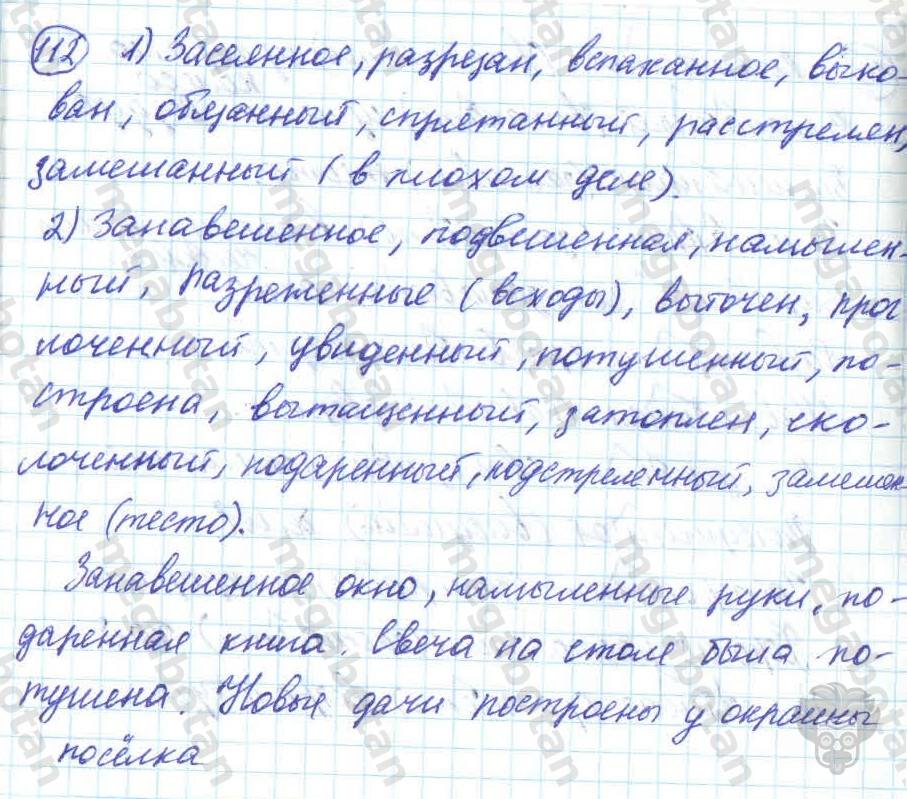 112 1) Заселнное, разрезан, вспаханное, выко-
ван, обещанный, спрятанный, расстрелен,
замешанный (в плохом деле).
2) Занавешенное, подвешенная, намылен-
ный, разреженные (всходы), выточен, прог
лоченный, увиденный, потушенный, по-
строена, вытащенный, затоплен, ско-
лоченный, подаренный, подстреленный, замешен-
ное (тесто).
Занавешенное окно, намыленные руки, по-
даренная книга. Свеча на столе была по-
тушена. Новые дачи построены у окраины
посёлка
megabotan